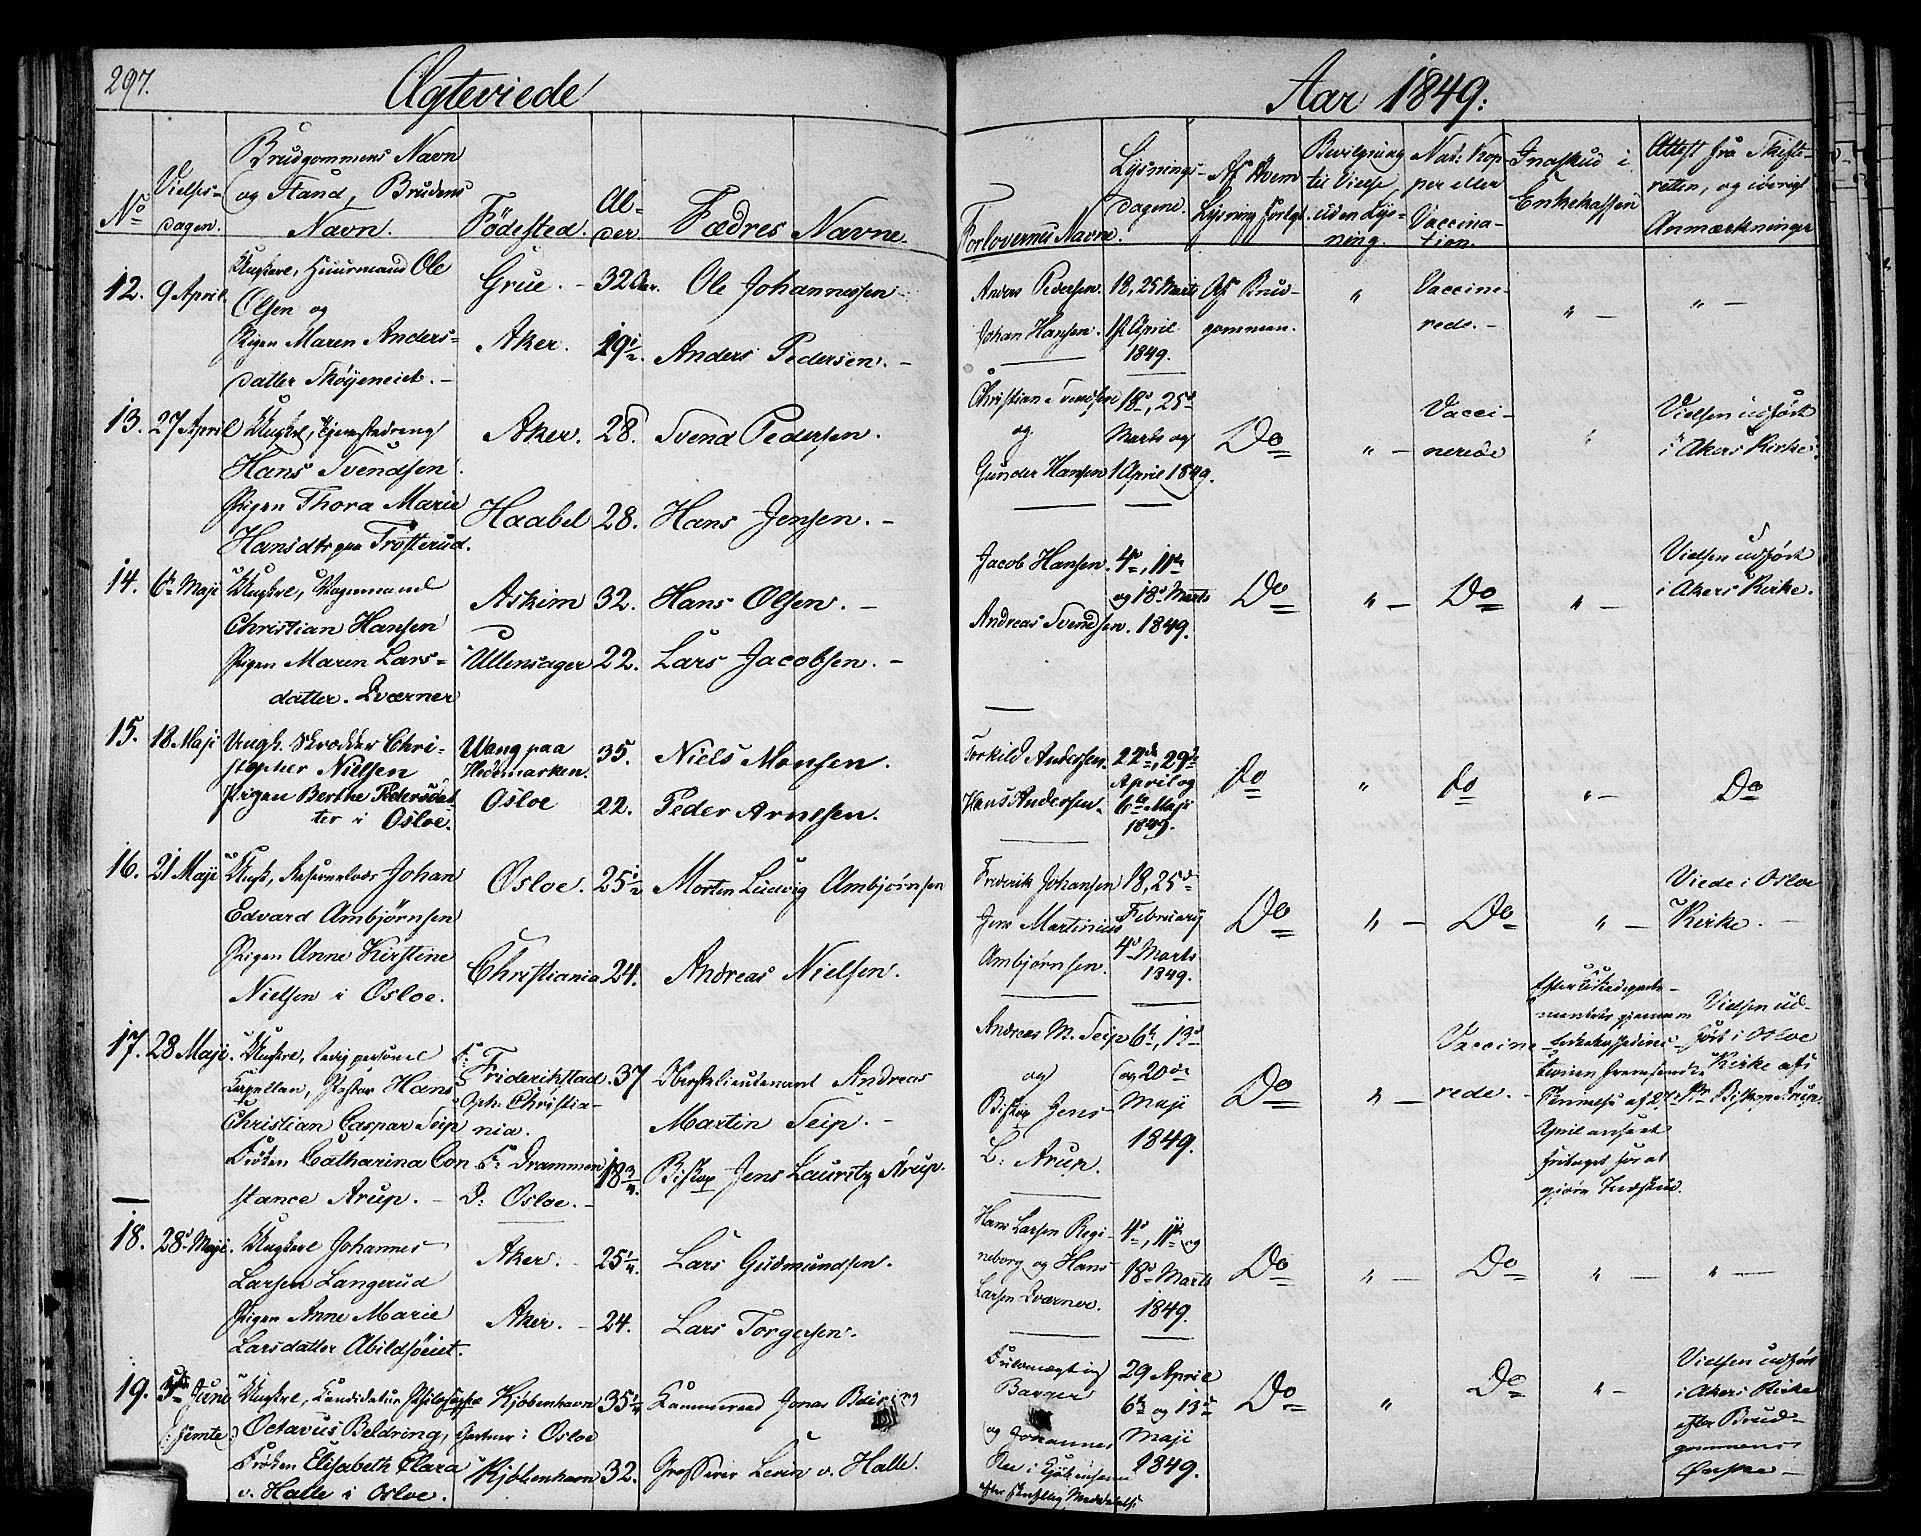 297.
Ægteviede
Aar 1849.
No
Vielses-
dagen.
Brudgommens Navn
og Stand, Brudens
Navn.
Födested.
Al-
der.
Fædres Navne.
Forlovernes Navne.
Lysnings-
dagene.
Af Hvem
Lysning forlgt
Bevilgning
til Vielse,
uden Lys-
ning.
Nat: Kop-
per eller
Vaccina-
tion.
Indskud i
Enkekassen
Attest fra Skifte-
retten, og iövrigt
Anmærkninger
12. 9 April
Ungkarl, Huusmand Ole
Olsen og
Pigen Maren Anders-
datter Skøyeneiet. -
Grue. -
Aker.
32 Aar.
29 1/2.
Ole Johannessen
Anders Pedersen. -
Anders Pedersen.
Johan Hansen.
18, 25 Marts
1st April
1849.
Af Brud-
gommen.
"
Vaccine-
rede. -
" -
" -
13. 27 April
Ungkarl, Tjenestedreng
Hans Svendsen.
Pigen Thora Marie
Hansdtr paa Trosterud.
Aker.
Haabel
28.
28.
Svend Pedersen.
Hans Jensen. -
Christian Svendsen
og
Gunder Hansen
18de, 25de
Marts og
1 April 1849.
Do
" -
Vacci-
nerede
"
Vielsen udført
i Akers Kirke.
14. 6te Maji
Ungkarl, Vognmand
Christian Hansen
Pigen Maren Lars-
datter. Qværner
Askim
Ullensager
32.
22.
Hans Olsen. -
Lars Jacobsen. -
Jacob Hansen.
Andreas Svendsen.
4de, 11te
og 18de Marts
1849.
Do
" -
Do
" -
Vielsen udført
i Akers Kirke.
15. 18 Maji
Ungk. Skrædder Chri-
stopher Nielsen
Pigen Berthe Pedersdat-
ter i Osloe.
Wang paa
Hedemarken.
Osloe
35.
22.
Niels Monsen.
Peder Arnesen.
Torkild Andersen.
Hans Andersen.
22de, 29de
April og
6te Maji
1849.
Do
"
do
" -
Do
16. 21 Maji
Ungk, Johan
Edvard Ambjørnsen
Pigen Anne Kirstine
Nielsen i Osloe.
Osloe.
Christiania
25 1/2
24.
Morten Ludvig Ambjørnsen
Andreas Nielsen.
Frederik Johansen
Jens Martinius
Ambjørnsen.
18, 25de
Februarij
4de Marts
1849.
Do
" -
Do
" -
Viede i Osloe
Kirke. -
17. 28 Maji.
Ungkarl, resid. personel
Capellan, Pastor Hans
Christian Caspar Seip
Frøken Catharina Con
stance Arup. -
F:
Friderikstad.
Oph: Christia-
nia.
F: Drammen
D: Osloe. -
37
18 3/4.
Oberstlieutenant Andreas
Martin Seip. -
Biskop Jens Lauritz Arup.
Andreas M. Seip
og
Biskop Jens
L: Arup.
6te, 13de
og 20de
Maji
1849.
Do
" -
Vaccine-
rede. -
Efter Kirkedeparte-
mentets gjennem
fremsendte
af 27de
April anseet
fritaget for at
gjøre Indskud.
Vielsen ud-
ført i Osloe
Kirke af
Hr Biskop Arup.
18. 28de Maji.
Ungkarl Johannes
Larsen Langerud
Pigen Anne Marie
Larsdatter Abildsöeiet.
Aker. -
Aker. -
25 1/4.
24.
Lars Gudmundsen.
Lars Torgersen.
Hans Larsen Regi-
neborg og Hans
Larsen Qværner.
4de, 11te og
18de Marts
1849.
Do
" -
Do
" -
" -
19. 3die Juni
(femte)
Ungkarl, Candidatus Philosophie
Octavus Beldring, Gartner i Osloe
Frøken Elisabeth Clara
v. Halle i Osloe.
Kjøbenhavn
Kjøbenhavn
35 1/4
32.
Kammerraad Jonas
Grosserer Levin v. Halle.
Fuldmægtig
Barger
og Johannes
29 April
6te og 13de
Maji
1849.
Do
"
Do
" -
Vielsen udført
i Akers Kirke
efter Brud-
gommens
Ønske -